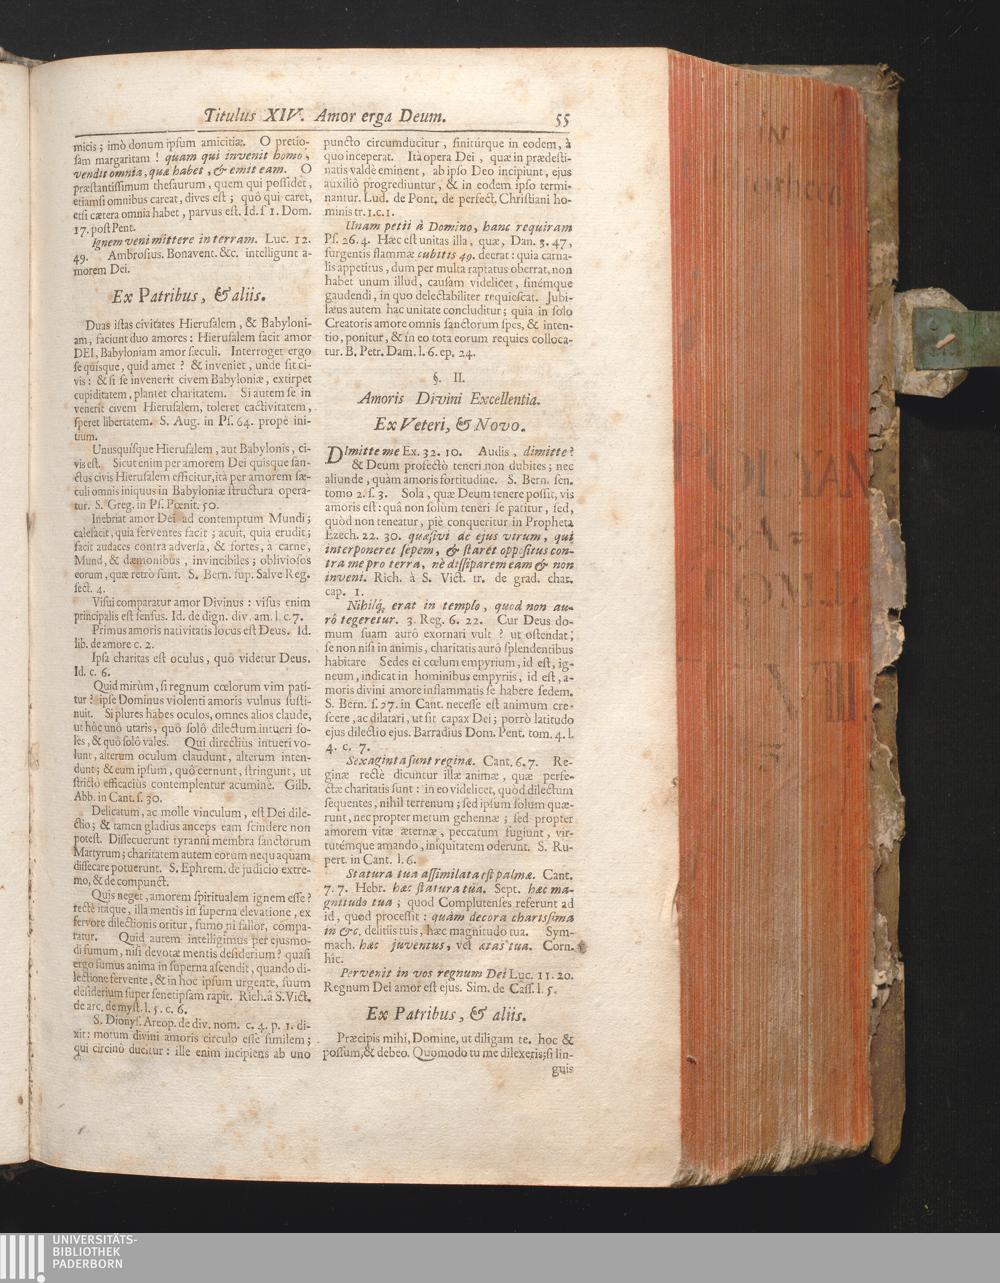 Titulus XIV. Amor erga Deum. 55
micis; imò donum ipsum amicitiæ. O pretio-
sam margaritam! quam qui invenit homo,
vendit omnia, quæ habet, & emit eam. O
præstantissimum thesaurum, quem qui possidet,
etiamsi omnibus careat, dives est; quô qui caret,
etsi cætera omnia habet, parvus est. Id. s 1. Dom.
17. post Pent.
Ignem veni mittere in terram. Luc. 12.
49. Ambrosius. Bonavent. &c. intelligunt a-
morem Dei.
Ex Patribus, & aliis.
Duas istas civitates Hierusalem, & Babyloni-
am, faciunt duo amores: Hierusalem facit amor
DEI, Babyloniam amor sæculi. Interroget ergo
se quisque, quid amet? & inveniet, unde sit ci-
vis: & si se invenerit civem Babyloniæ, extirpet
cupiditatem, plantet charitatem. Si autem se in
venerit civem Hierusalem, toleret cactivitatem,
speret libertatem. S. Aug. in Ps. 64. propè ini-
tium.
Unusquisque Hierusalem, aut Babylonis, ci-
vis est. Sicut enim per amorem Dei quisque san-
ctus civis Hierusalem efficitur, ità per amorem sæ-
culi omnis iniquus in Babyloniæ structura opera-
tur. S. Greg. in Ps. Pœnit. 50.
Inebriat amor Dei ad contemptum Mundi;
calefacit, quia ferventes facit; acuit, quia erudit;
facit audaces contra adversa, & fortes, à carne,
Mund, & dæmonibus, invincibiles; obliviosos
eorum, quæ retrò sunt. S. Bern. sup. Salve Reg.
sect. 4.
Visui comparatur amor Divinus: visus enim
principalis est sensus. Id. de dign. div. am. l. c. 7.
Primus amoris nativitatis locus est Deus. Id.
lib. de amore c. 2.
Ipsa charitas est oculus, quô videtur Deus.
Id. c. 6.
Quid mirùm, si regnum cœlorum vim pati-
tur? ipse Dominus violenti amoris vulnus susti-
nuit. Si plures habes oculos, omnes alios claude,
ut hôc unô utaris, quô solô dilectum intueri so-
les, & quô solô vales. Qui directiùs intueri vo-
lunt, alterum oculum claudunt, alterum inten-
dunt; & eum ipsum, quô cernunt, stringunt, ut
strictò efficaciùs contemplentur acumine. Gilb.
Abb. in Cant. s. 30.
Delicatum, ac molle vinculum, est Dei dile-
ctio; & tamen gladius anceps eam scindere non
potest. Dissecuerunt tyranni membra sanctorum
Martyrum; charitatem autem eorum nequaquam
dissecare potuerunt. S. Ephrem. de judicio extre-
mo, & de compunct.
Quis neget, amorem spiritualem ignem esse?
rectè itaque, illa mentis in superna elevatione, ex
fervore dilectionis oritur, fumo, ni fallor, compa-
ratur. Quid autem intelligimus per ejusmo-
di fumum, nisi devotæ mentis desiderium? quasi
ergo fumus anima in superna ascendit, quando di-
lectione fervente, & in hoc ipsum urgente, suum
desiderium super semetipsam rapit. Rich. à S. Vict.
de arc. de myst. l. 5. c. 6.
S. Dionys. Areop. de div. nom. c. 4. p. 1. di-
xit: motum divini amoris circulo esse similem;
qui circinô ducitur: ille enim incipiens ab uno
puncto circumducitur, finiturque in eodem, à
quo inceperat. Ità opera Dei, quæ in prædesti-
natis valdè eminent, ab ipso Deo incipiunt, ejus
auxiliô progrediuntur, & in eodem ipso termi-
nantur. Lud. de Pont. de perfect. Christiani ho-
minis tr. 1. c. 1.
Unam petii à Domino, hanc requiram
Ps. 26. 4. Hæc est unitas illa, quæ, Dan. 3. 47,
surgentis flammæ cubitis 49. deerat: quia carna-
lis appetitus, dum per multa raptatus oberrat, non
habet unum illud, causam videlicet, finémque
gaudendi, in quo delectabiliter requiescat. Jubi-
læus autem hac unitate concluditur; quia in solo
Creatoris amore omnis sanctorum spes, & inten-
tio, ponitur, & in eo tota eorum requies colloca-
tur. B. Petr. Dam. l. 6. ep. 24.
§. II.
Amoris Divini Excellentia.
Ex Veteri, & Novo.
Dimitte me Ex. 32. 10. Audis, dimitte?
& Deum profectò teneri non dubites; nec
aliunde, quàm amoris fortitudine. S. Bern. sen.
tomo 2. s. 3. Sola, quæ Deum tenere possit, vis
amoris est: quâ non solùm teneri se patitur, sed,
quòd non teneatur, piè conqueritur in Propheta
Ezech. 22. 30. quæsivi de ejus virum, qui
interponeret sepem, & staret oppositus con-
tra me pro terra, nè dissiparem eam & non
inveni. Rich. à S. Vict. tr. de grad. char.
cap. 1.
Nihilq; erat in templo, quod non au-
rô tegeretur. 3. Reg. 6. 22. Cur Deus do-
mum suam aurô exornari vult? ut ostendat,
se non nisi in animis, charitatis aurô splendentibus
habitare Sedes ei cœlum empyrium, id est, ig-
neum, indicat in hominibus empyriis, id est, a-
moris divini amore inflammatis se habere sedem.
S. Bern. s. 27. in Cant. necesse est animum cre-
scere, ac dilatari, ut sit capax Dei; porrò latitudo
ejus dilectio ejus. Barradius Dom. Pent. tom. 4. l.
4. c. 7.
Sexaginta sunt reginæ. Cant. 6. 7. Re-
ginæ rectè dicuntur illæ animæ, quæ perfe-
ctæ charitatis sunt: in eo videlicet, quòd dilectum
sequentes, nihil terrenum; sed ipsum solum quæ-
runt, nec propter metum gehennæ; sed propter
amorem vitæ æternæ, peccatum fugiunt, vir-
tutémque amando, iniquitatem oderunt. S. Ru-
pert. in Cant. l. 6.
Statura tua assimilata est palmæ. Cant.
7. 7. Hebr. hæc statura tua. Sept. hæc ma-
gnitudo tua; quod Complutenses referunt ad
id, quod processit: quàm decora charissima
in &c. delitiis tuis, hæc magnitudo tua. Sym-
mach. hæc juventus, vel ætas tua. Corn.
hic.
Pervenit in vos regnum Dei Luc. 11. 20.
Regnum Dei amor est ejus. Sim. de Cass. l. 5.
Ex Patribus, & aliis.
Præcipis mihi, Domine, ut diligam te. hoc &
possum, & debeo. Quomodo tu me dilexeris; si lin-
guis
UNIVERSITÄTS-
BIBLIOTHEK
PADERBORN